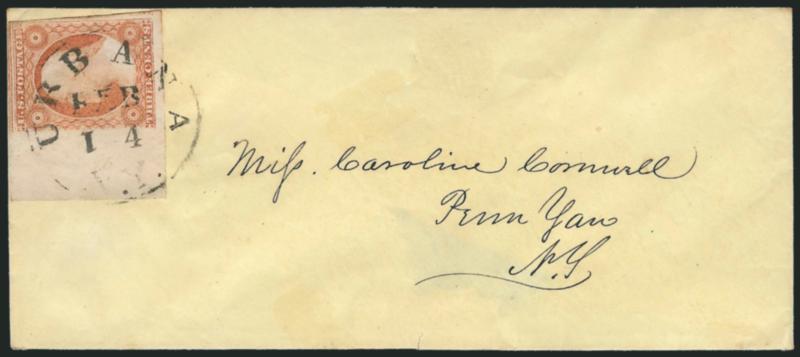 U.S. POSTAGE
THREE CENTS
URBANA
FEB
14
N.Y.
Miſs. Caroline Cornwell
Penn Yan
N.Y